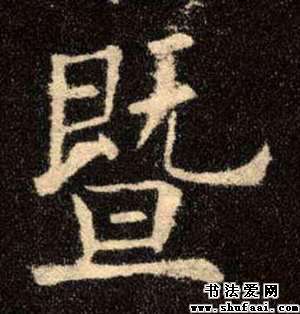 暨
书法爱网
www.shufaai.com